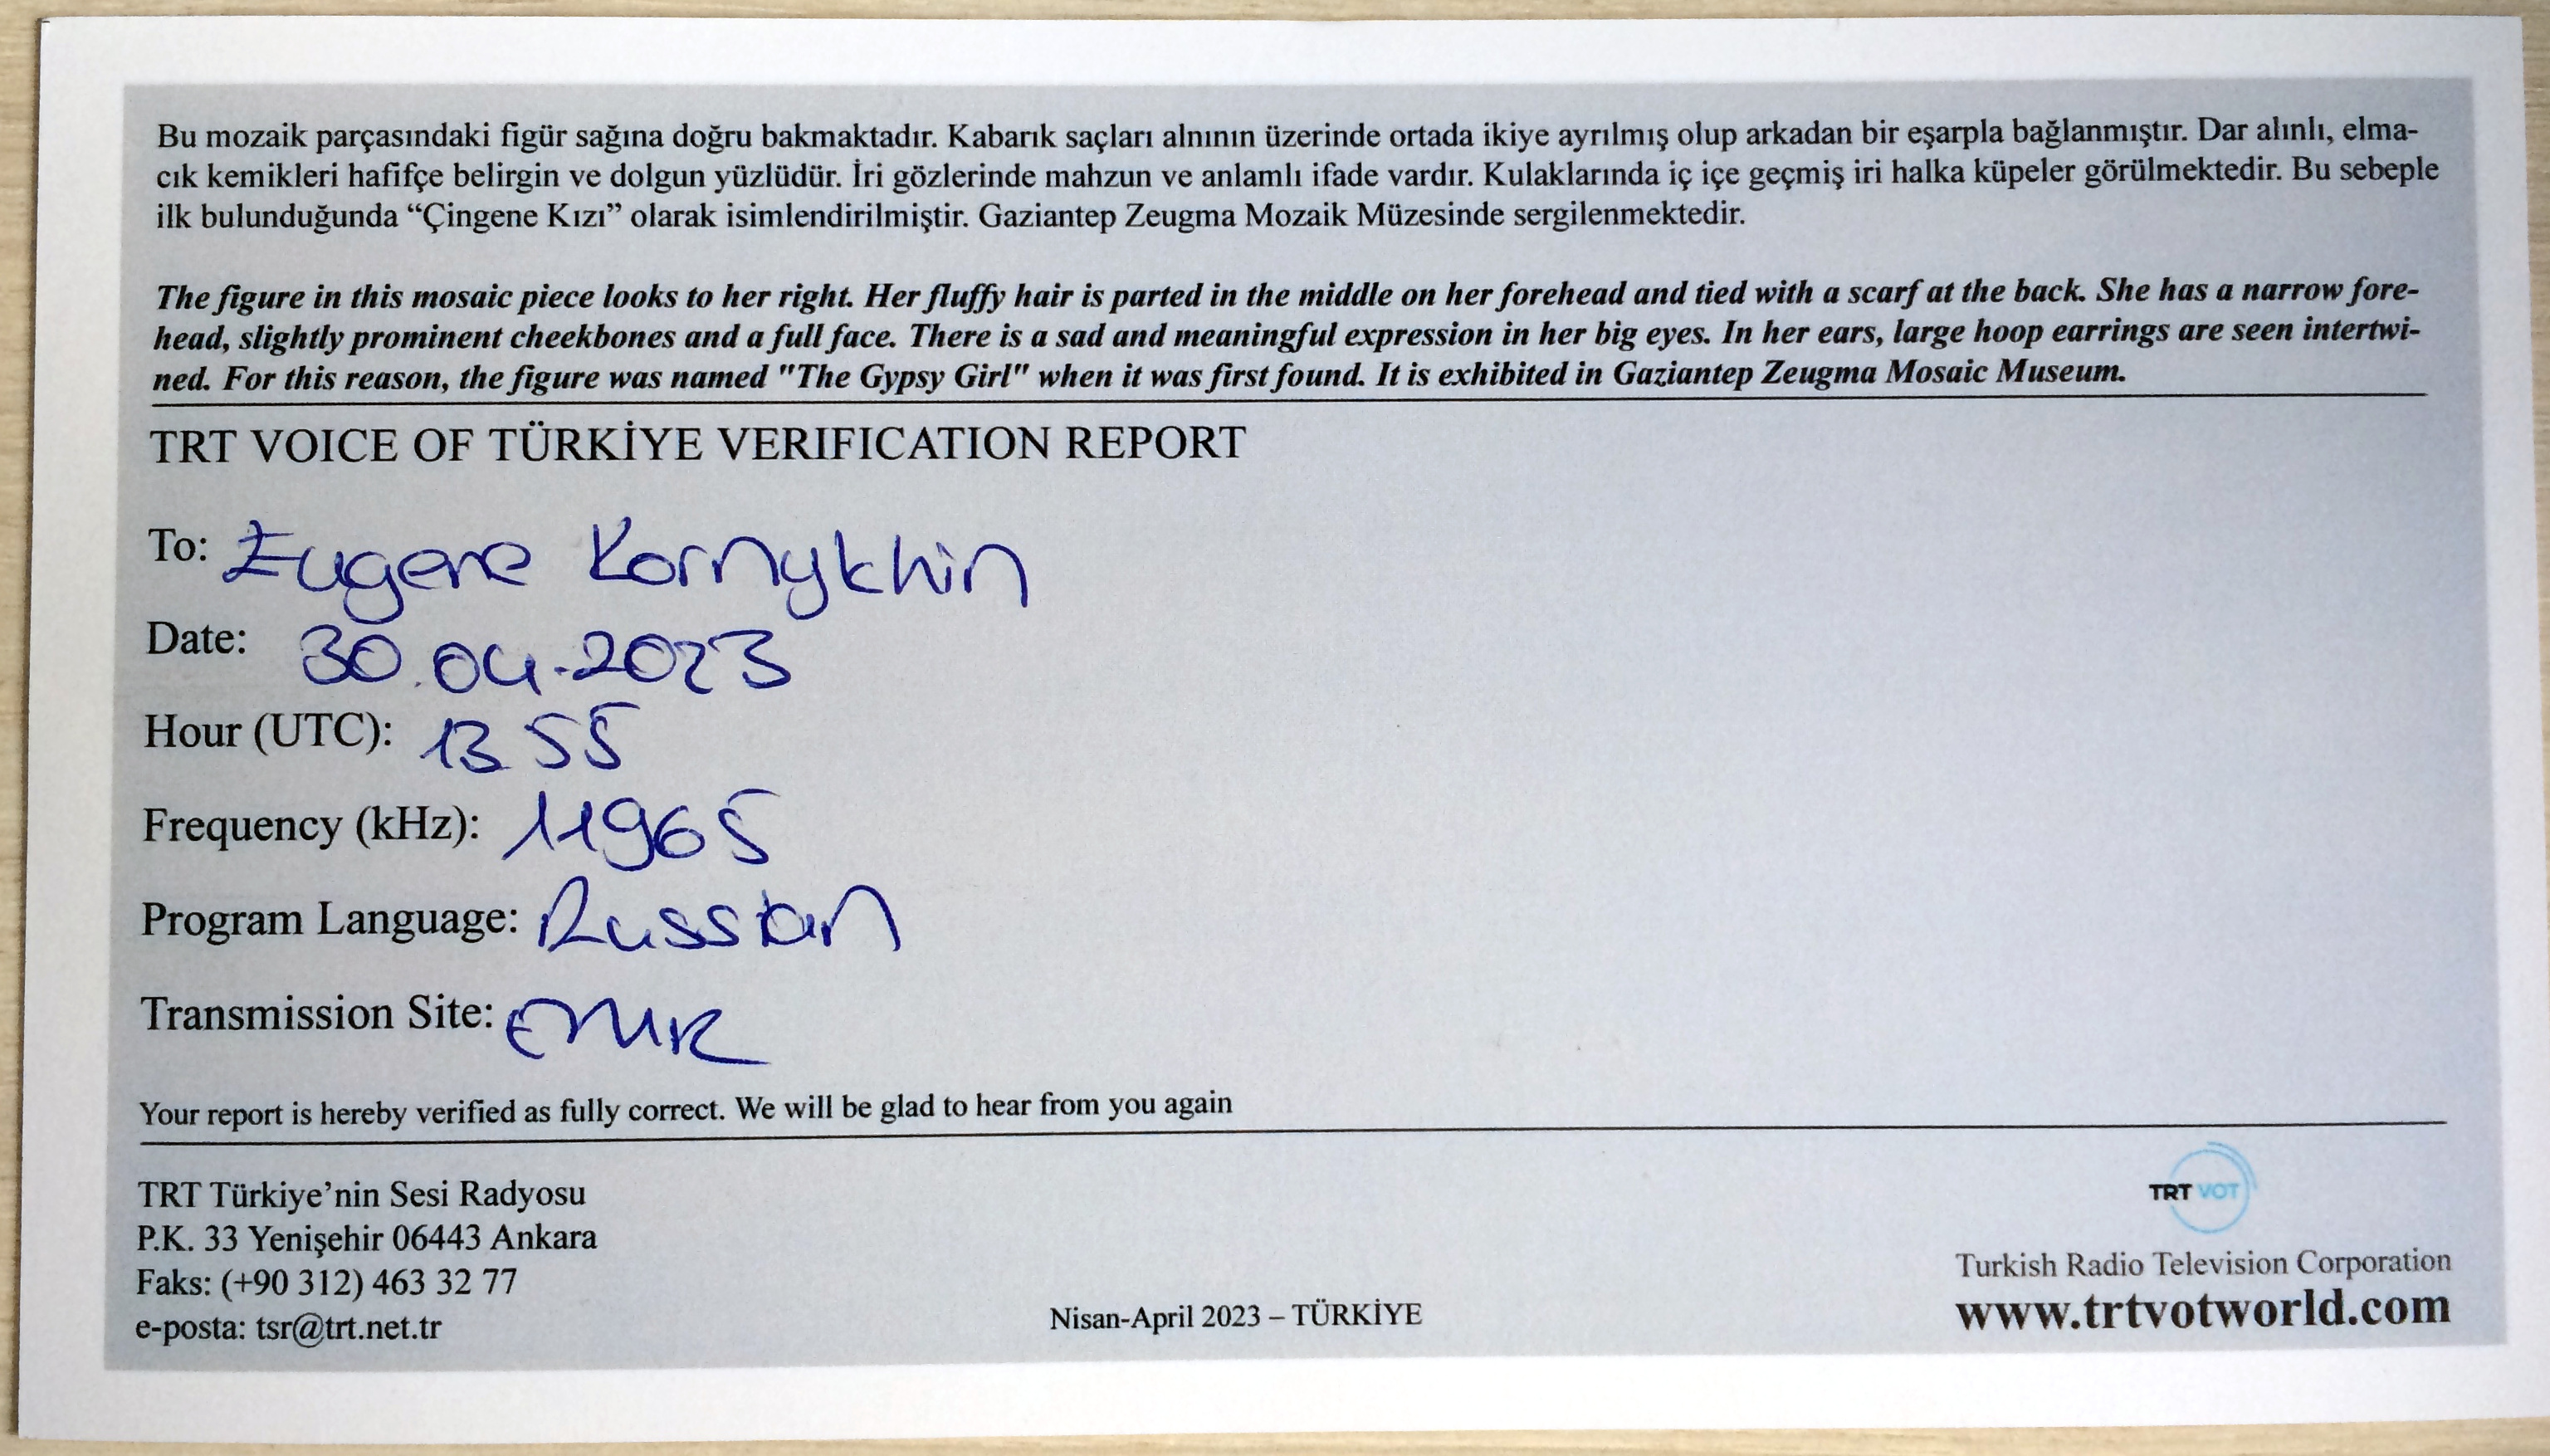 Bu mozaik parçasındaki figür sağına doğru bakmaktadır. Kabarık saçları alnının üzerinde ortada ikiye ayrılmış olup arkadan bir eşarpla bağlanmıştır. Dar alınlı, elma-
cık kemikleri hafifçe belirgin ve dolgun yüzlüdür. İri gözlerinde mahzun ve anlamlı ifade vardır. Kulaklarında iç içe geçmiş iri halka küpeler görülmektedir. Bu sebeple
ilk bulunduğunda “Çingene Kızı” olarak isimlendirilmiştir. Gaziantep Zeugma Mozaik Müzesinde sergilenmektedir.
The figure in this mosaic piece looks to her right. Her fluffy hair is parted in the middle on her forehead and tied with a scarf at the back. She has a narrow fore-
head, slightly prominent cheekbones and a full face. There is a sad and meaningful expression in her big eyes. In her ears, large hoop earrings are seen intertwi-
ned. For this reason, the figure was named "The Gypsy Girl" when it was first found. It is exhibited in Gaziantep Zeugma Mosaic Museum.
TRT VOICE OF TÜRKİYE VERIFICATION REPORT
To: Eugene Kornykhin
Date: 30.04.2023
Hour (UTC): 13 55
Frequency (kHz): 11965
Program Language: Russian
Transmission Site: EMR
Your report is hereby verified as fully correct. We will be glad to hear from you again
TRT Türkiye’nin Sesi Radyosu
P.K. 33 Yenişehir 06443 Ankara
Faks: (+90 312) 463 32 77
e-posta: tsr@trt.net.tr
Nisan-April 2023 – TÜRKİYE
TRT VOT
Turkish Radio Television Corporation
www.trtvotworld.com